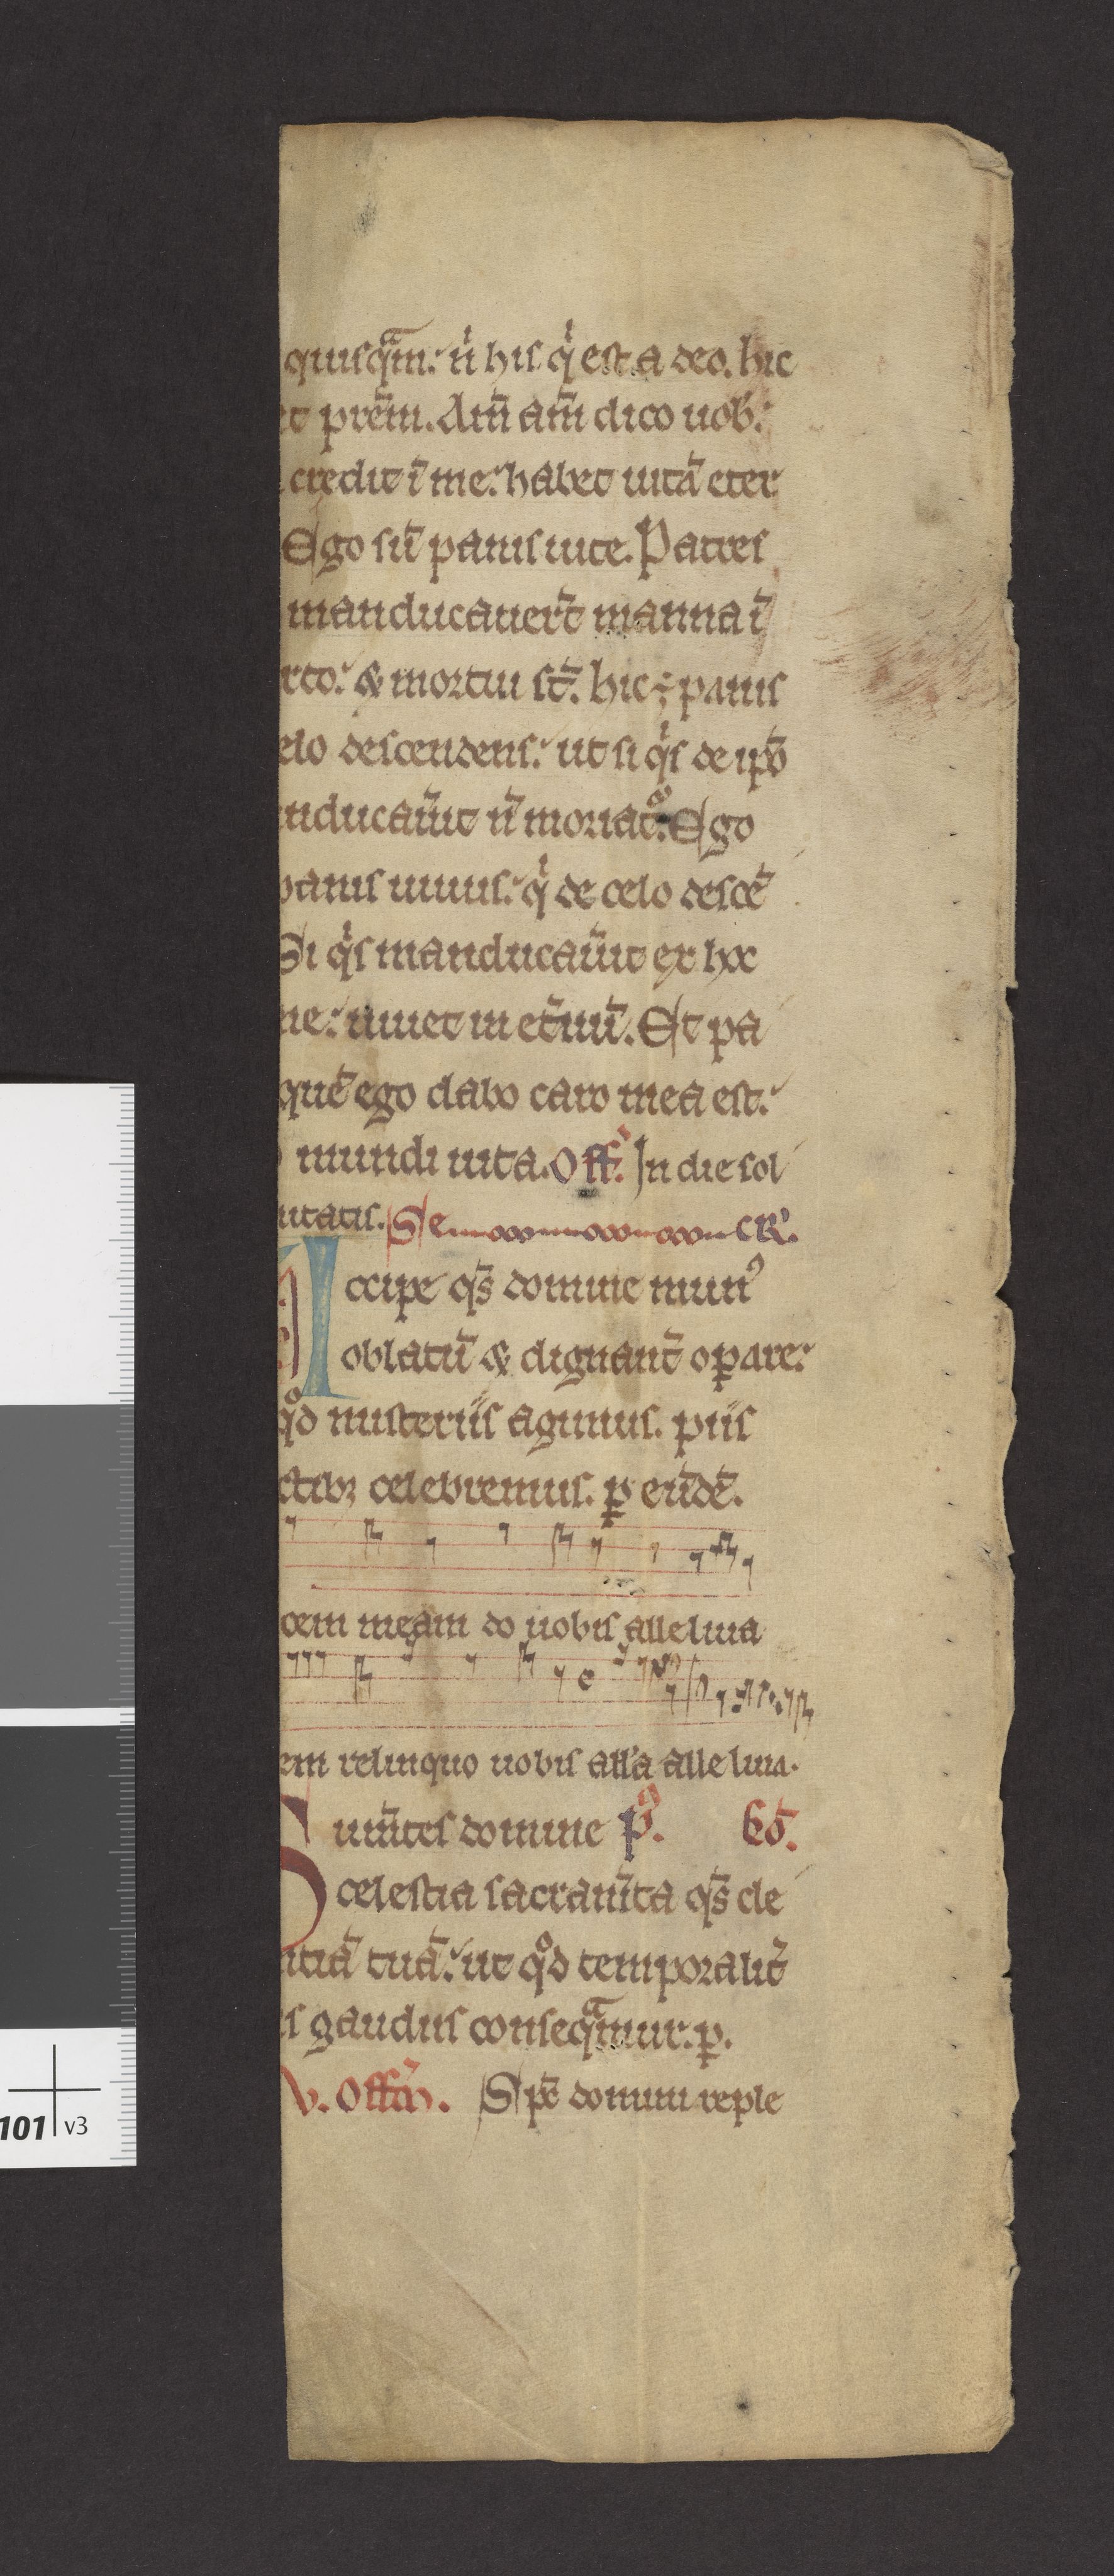 quisqᵃm. nͥ his qͥ est a deo. hic
et pr̄em. Am̄ am̄ dico uob.
credit ī me. habet uitā eter
Ego sū panis uite. Patres
manducauer̄t manna ī
rto. & mortui st̄. hic ÷ panis
elo descendens. ut si qͥs de ip̄o
nducau̾it n̄ moriat᷒. Ego
panis uiuus. qͥ de celo descē
Si qͥs manducau̾it ex hoc
ne. uiuet in et̾nū. Et pa
quē ego dabo caro mea est.
mundi uita. Off̾. In die sol
nitatis. Secr̾.
ccipe qs̄ domine mun᷒
oblatū & dignant̾ oꝑare.
qͦd misteriis agimus. piis
ctibꝫ celebremus. ꝑ eūdē.
cem meam do uobis alleluia
em relinquo uobis all̾a alleluia.
S um̄tes domine p᷒. Co̅.
celestia sacram̄ta qs̄ cle
ntiā tuā. ut qͦd temporalit̾
is gaudiis conseqᵃmur. p.
v. Offm̄. Sp̄c domini reple
101 v3